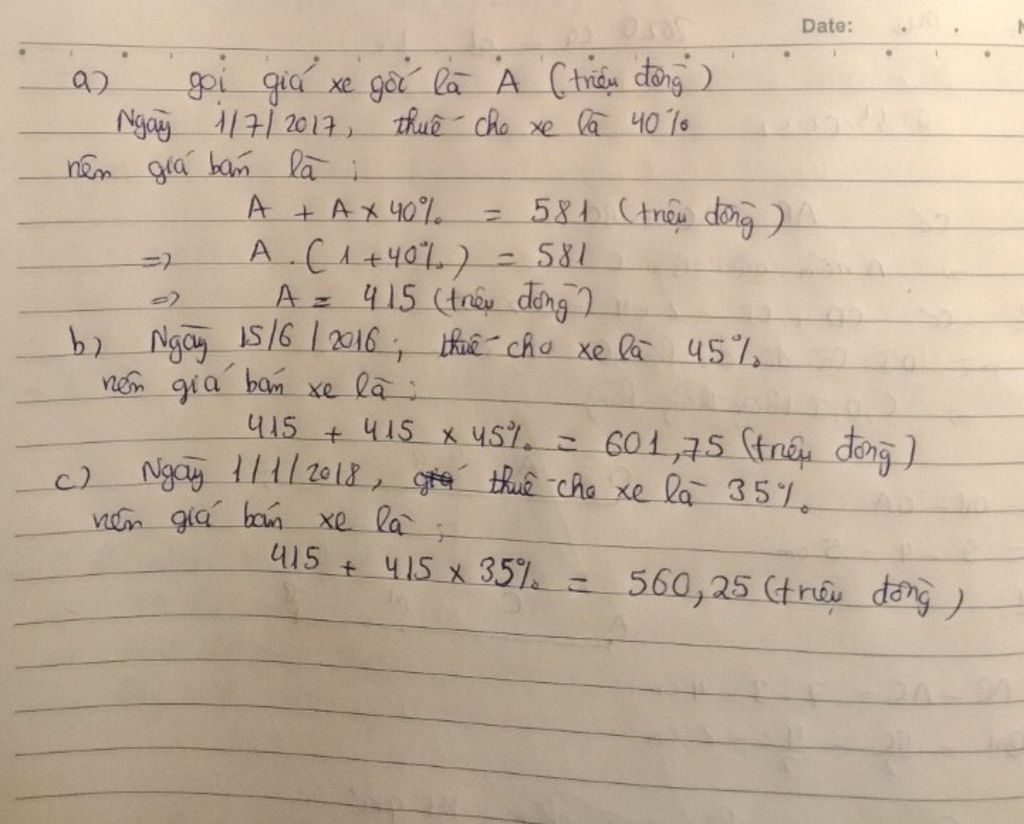 Date:
a) gọi giá xe gốc là A (triệu đồng)
Ngày 1/7/2017, thuế cho xe là 40%
nên giá bán là :
A + A × 40% = 581 (triệu đồng)
=> A . (1 + 40%) = 581
=> A = 415 (triệu đồng)
b) Ngày 15/6/2016 ; thuế cho xe là 45%.
nên giá bán xe là :
415 + 415 × 45% = 601,75 (triệu đồng)
c) Ngày 1/1/2018, giá thuế cho xe là 35%.
nên giá bán xe là ;
415 + 415 × 35% = 560,25 (triệu đồng)